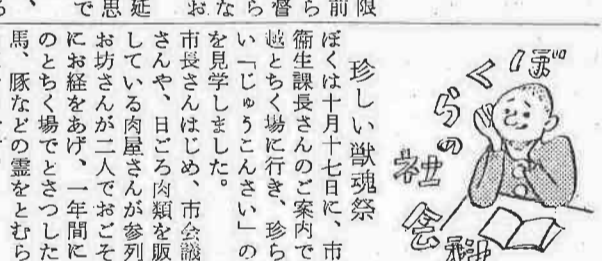 ぼくらの社会科
珍しい獣魂祭
ぼくは十月十七日に、市
衞生課長さんのご案内で
越とちく場に行き、珍ら
い「じゅうこんさい」の
を見学しました。
市長さんはじめ、市会議
さんや、日ごろ肉類を販
している肉屋さんが参列
お坊さんが二人でおごそ
にお経をあげ、一年間に
のとちく場でとさつした
馬、豚などの霊をとむら